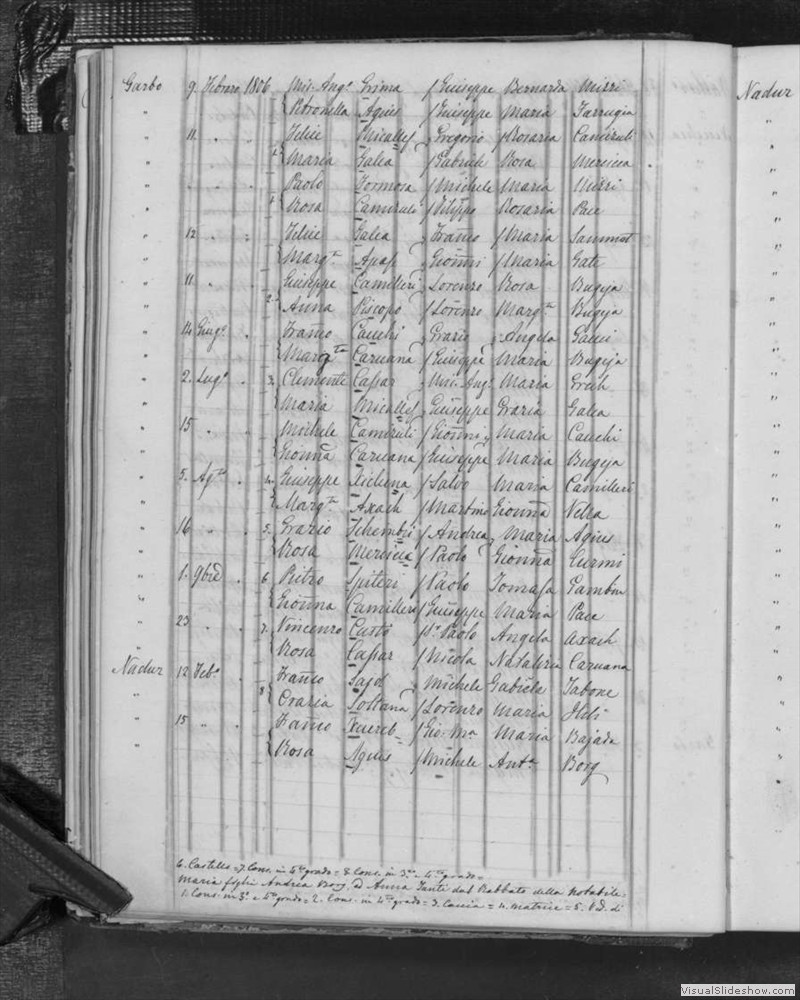 Garbo 9. Febraro 1806 Mic. Ang.o Grima / Giuseppe Bernarda Mizzi Nadur
" Petronilla Agius / Giuseppe Maria Farrugia
" 11 " " Felice Micallef Gregorio / Rosaria Camiruli
" Maria Galea / Gabriele Rosa Mercieca
" " " Paolo Formosa / Michele Maria Mizzi
" Rosa Camiruli / Filippo Rosaria Pace
" 12 " " Felice Galea Franco / Maria Sammut
" Marg.ta Gionni / Maria
" 11 " " Giuseppe Camilleri Lorenzo Rosa Bugeja
" 2. Anna Piscopo / Lorenzo Marg.ta Bugeja
" 14 Giug.o " Franco Cauchi Grazio Angela Gauci
" Marg.ta Caruana / Giuseppe Maria Bugeja
" 2. Lug.o " 3. Clemente Cassar Mic. Ang.o Maria Grech
" Maria Micallef Giuseppe Grazia Galea
" 15 " Michele Camiruli / Gionni Maria Cauchi
" Gionna Caruana / Giuseppe Maria Bugeja
" 5. Ag.to " 4. Giuseppe Salvo Maria Camilleri
" Marg.ta Axach / Martino Gionna Vella
" 16 " " 5. Grazio Schembri / Andrea Maria Agius
" Rosa Mercieca / Paolo Gionna Curmi
" 1. 9bre " 6. Pietro Spiteri / Paolo Tomasa Gambin
" Gionna Camilleri / Giuseppe Maria Pace
" 23 " " 7. Vincenzo Custò / Paolo Angela Axach
" Rosa Cassar / Nicola Natalizia Caruana
Nadur 12 Feb.o " Franco Michele Tabone
" 8 Oraria Soltana / Lorenzo Maria
" 15 " " Franco Xuereb / Gio. Ma Maria Bajada
" Rosa Agius / Michele Ant.a Borg
6. Castello = 7. Cons. in 4.to grado = 8. Cons. in 3.o e 4.to grado =
Maria figlia Andrea Borg, ed Anna dal Rabbato della Notabile
1. Cons. in 3.o e 4.to grado = 2. Cons. in 4.to grado = 3. Caccia = 4. Matrice = 5. Vd. di
VisualSlideshow.com